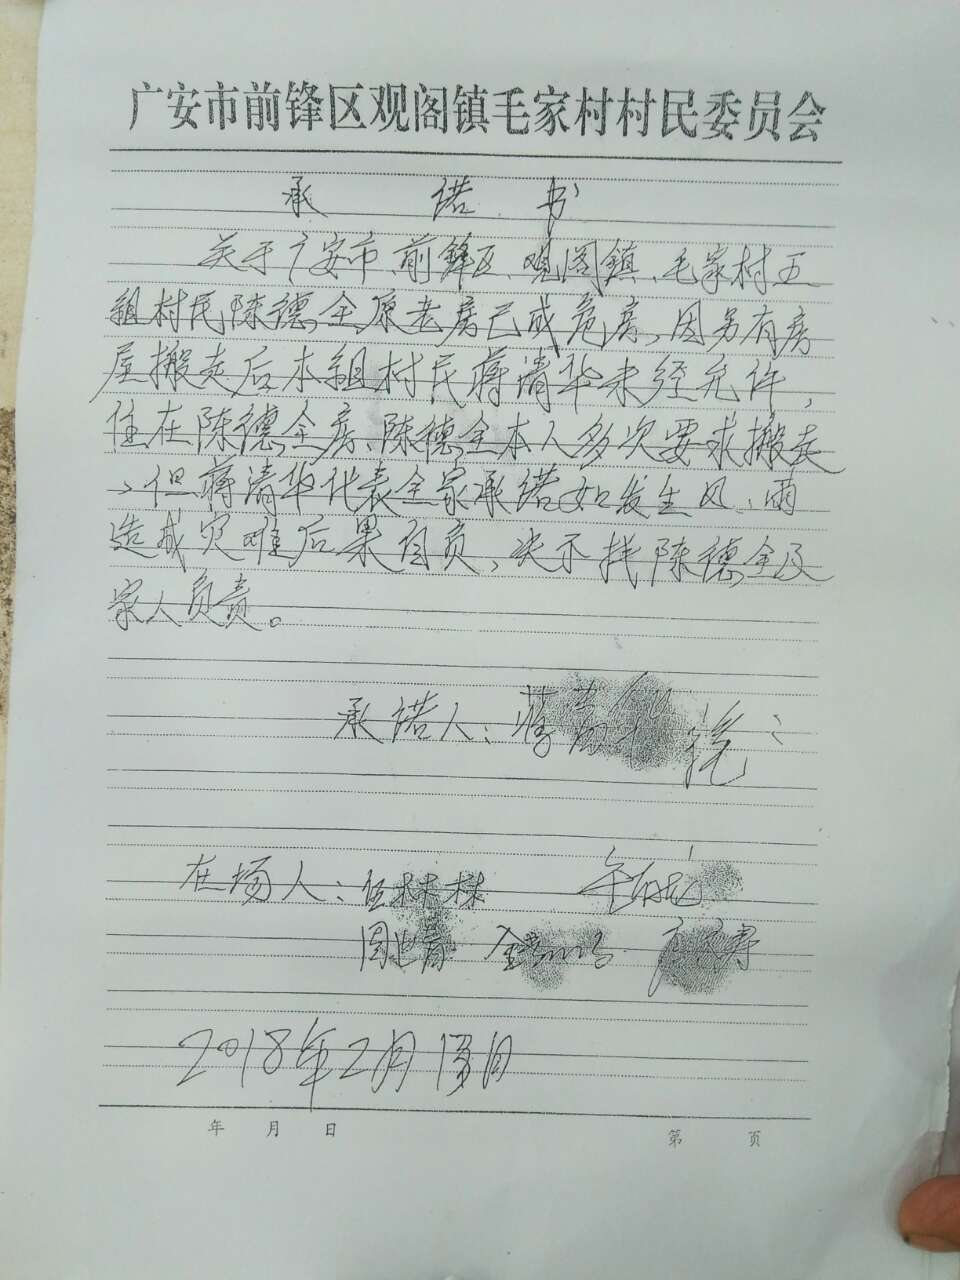 广安市前锋区观阁镇毛家村村民委员会
承诺书
关于广安市、前锋区、观阁镇、毛家村五
组村民陈德全原老房已成危房、因另有房
屋搬走后本组村民蒋清华未经允许，
住在陈德全房、陈德全本人多次要求搬走
、但蒋清华代表全家承诺如发生风、雨
造成灾难后果自负、决不找陈德全及
家人负责。
承诺人：蒋清华
在场人：伍林林
2018年2月1日
年 月 日 第 页